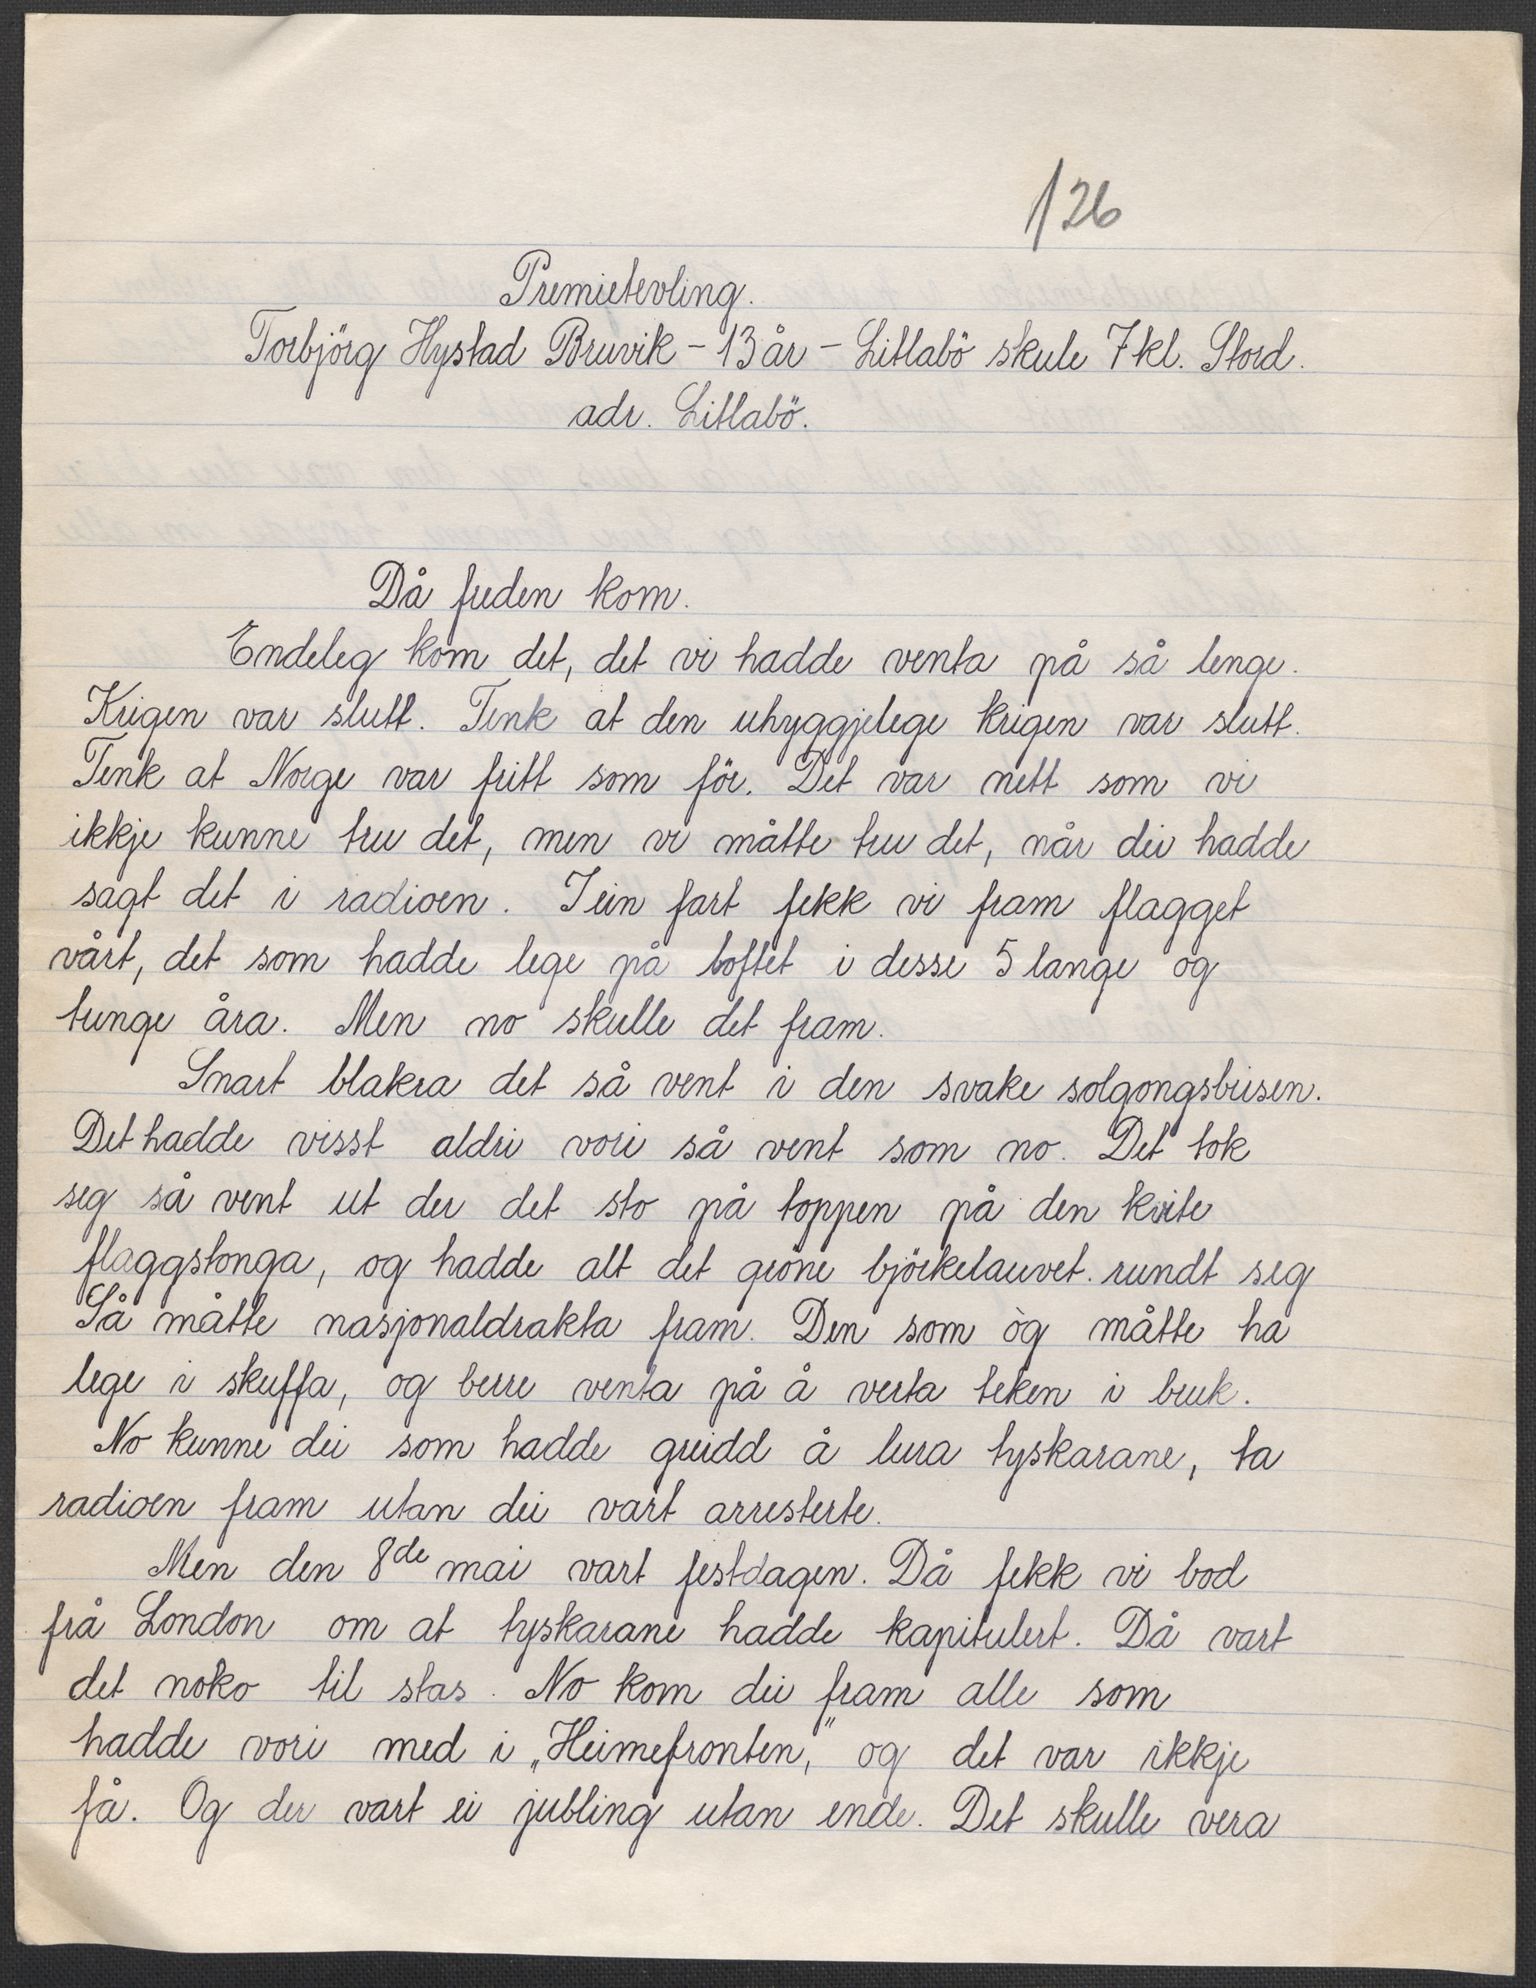 126
Premietevling.
Torbjörg Hystad Bruvik - 13 år - Litlabö skule 7 kl. Stord.
adr. Litlabö.
Då freden kom.
Endeleg kom det, det vi hadde venta på så lenge.
Krigen var slutt. Tenk at den uhyggjelege krigen var slutt.
Tenk at Norge var fritt som för. Det var nett som vi
ikkje kunne tru det, men vi måtte tru det, når dei hadde
sagt det i radioen. I ein fart fekk vi fram flagget
vårt, det som hadde lege på loftet i desse 5 lange og
tunge åra. Men no skulle det fram.
Snart blakra det så vent i den svake solgongsbrisen.
Det hadde visst aldri vori så vent som no. Det tok
seg så vent ut der det sto på toppen på den kvite
flaggstonga, og hadde alt det gröne björkelauvet. rundt seg
Så måtte nasjonaldrakta fram. Den som òg måtte ha
lege i skuffa, og berre venta på å verta teken i bruk.
No kunne dei som hadde greidd å lura tyskarane, ta
radioen fram utan dei vart arresterte.
Men den 8de mai vart festdagen. Då fekk vi bod
frå London om at tyskarane hadde kapitulert. Då vart
det noko til stas. No kom dei fram alle som
hadde vori med i „Heimefronten," og det var ikkje
få. Og der vart ei jubling utan ende. Det skulle vera